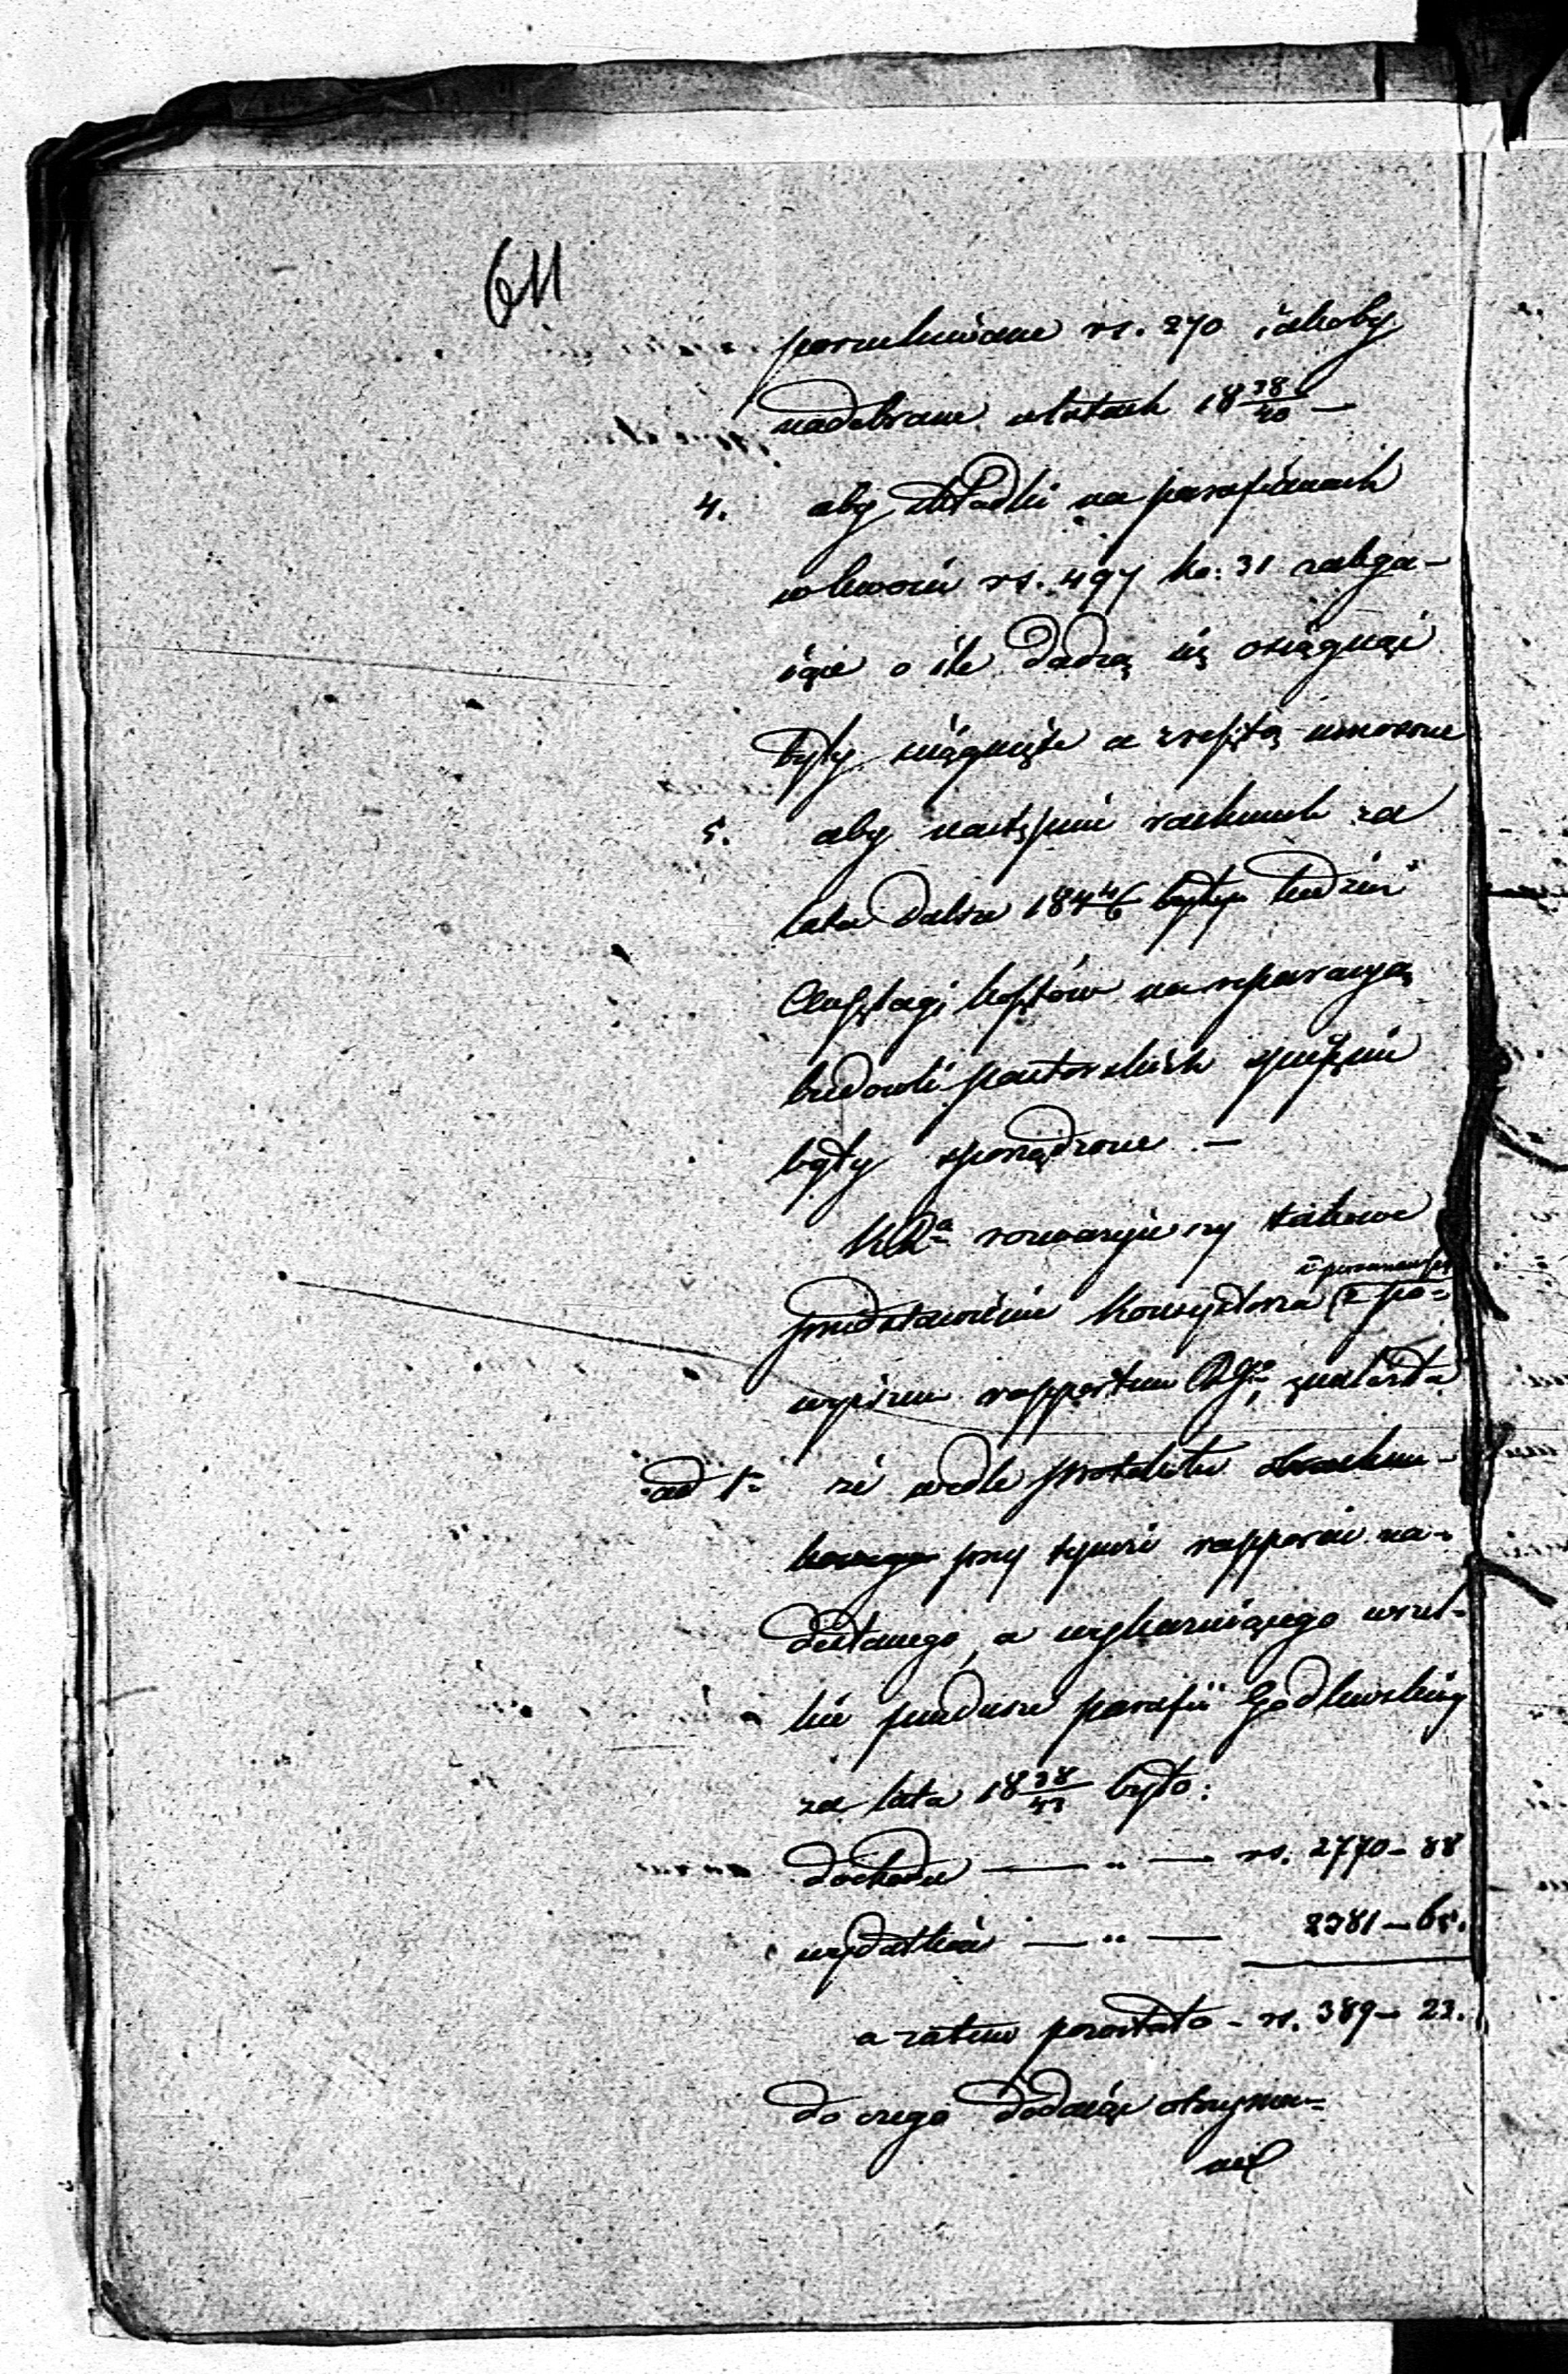 611
poszukiwane rs. 270 jakoby
nadebrane w latach 18 38/40 —
4. aby składki na parafianach
w kwocie rs. 497 ko: 31 zalega-
jące o ile dadzą się osiągnąć
były ściągnięte a resztą umorzone
5. aby następnie rachunek za
lata dalsze 184 4/6 tudzież
Anszlagi kosztów na reparacyą
budowli pastorskich śpiesznie
były sporządzone —
rozważywszy takowe
przedstawienie Konsystorza i po-
wyższem rapportem RGo, znalazła
ad 1o że wedle protokołu obrachun-
kowego przy tymże rapporcie na-
desłanego, a wykazującego wszel-
kie fundusze parafii Godlewskiej
za lata 18 38/43 było:
dochodu — „ — rs. 2770 - 88
wydatków — „ — 2381 — 65.
a zatem pozostało - rs. 389 - 23.
do czego dodając otrzyma-